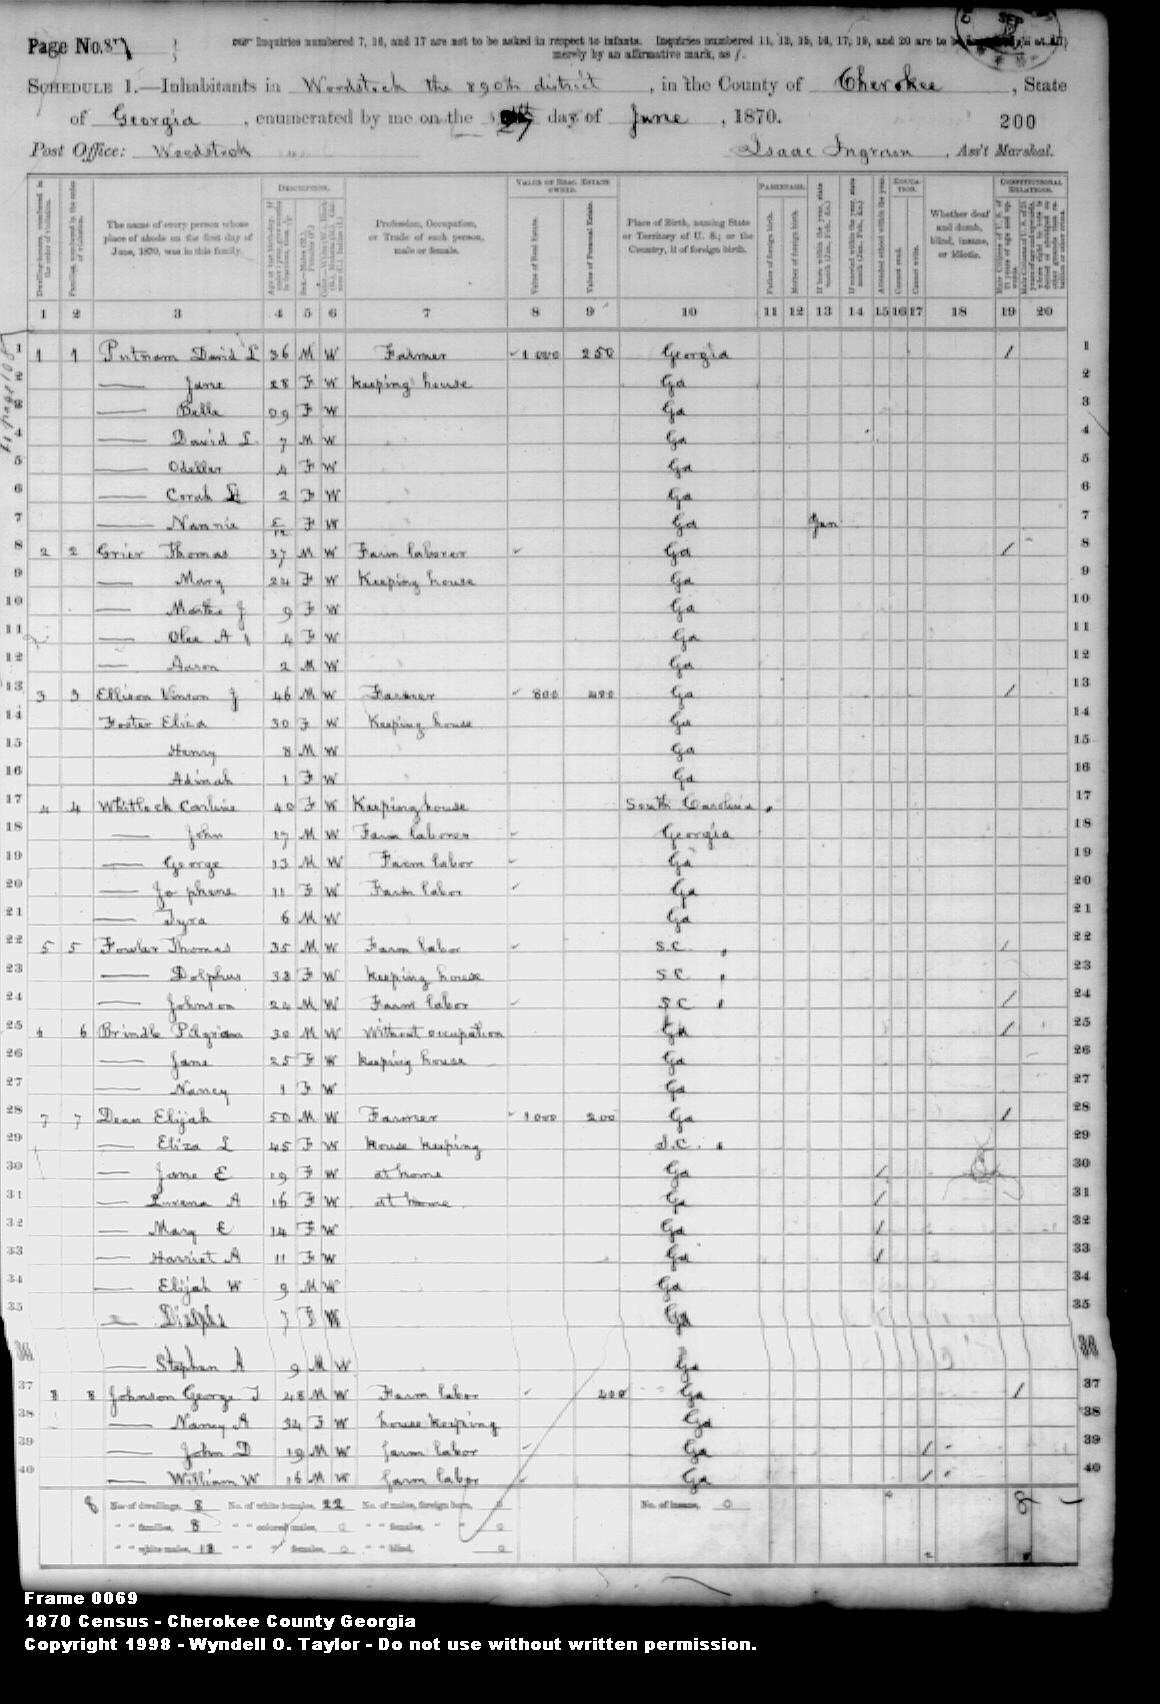 Page No. 87
Inquiries numbered 7, 16, and 17 are not to be asked in respect to infants. Inquiries numbered 11, 12, 15, 16, 17, 19, and 20 are to be
merely by an affirmative mark, as /.
SCHEDULE 1.—Inhabitants in Woodstock the 890th district, in the County of Cherokee, State
of Georgia, enumerated by me on the day of June, 1870.
200
Post Office: Woodstock Isaac Ingram, Ass't Marshal.
DESCRIPTION. VALUE OF REAL ESTATE OWNED. PARENTAGE. EDUCATION. CONSTITUTIONAL RELATIONS.
The name of every person whose place of abode on the first day of June, 1870, was in this family. Profession, Occupation, or Trade of each person, male or female. Value of Real Estate. Value of Personal Estate. Place of Birth, naming State or Territory of U. S.; or the Country, if of foreign birth. Father of foreign birth. Mother of foreign birth. Attended school within the year. Cannot read. Cannot write. Whether deaf and dumb, blind, insane, or idiotic.
1 2 3 4 5 6 7 8 9 10 11 12 13 14 15 16 17 18 19 20
1 1 1 Putnam David L 36 M W Farmer 1000 250 Georgia / 1
2 — Jane 28 F W Keeping house Ga 2
3 — Bella 09 F W Ga 3
4 — David L 7 M W Ga 4
5 — Odellar 4 F W Ga 5
6 — Corah 2 F W Ga 6
7 — Nannie 5/12 F W Ga Jan 7
8 2 2 Grier Thomas 37 M W Farm laborer Ga / 8
9 — Mary 24 F W Keeping house Ga 9
10 — Martha J 9 F W Ga 10
11 — Olee A 4 F W Ga 11
12 — Aaron 2 M W Ga 12
13 3 3 Ellison Vinson J 46 M W Farmer 800 400 Ga / 13
14 Foster Eliza 30 F W Keeping house Ga 14
15 Henry 8 M W Ga 15
16 Adinah 1 F W Ga 16
17 4 4 Whitlock Carline 40 F W Keeping house South Carolina 17
18 — John 17 M W Farm laborer Georgia 18
19 — George 13 M W Farm labor Ga 19
20 — Jo phene 11 F W Farm labor Ga 20
21 — Tyra 6 M W Ga 21
22 5 5 Fowler Thomas 35 M W Farm labor S.C. / 22
23 — Dolphus 38 F W Keeping house S C 23
24 — Johnson 24 M W Farm labor S C / 24
25 6 6 Brindle Pilgriam 30 M W Without occupation Ga / 25
26 — Jane 25 F W Keeping house Ga 26
27 — Nancy 1 F W Ga 27
28 7 7 Dean Elijah 50 M W Farmer 1000 200 Ga / 28
29 — Eliza L 45 F W house keeping S.C. 29
30 — Jane E 19 F W at home Ga / 30
31 — Luvena A 16 F W at home Ga / 31
32 — Mary E 14 F W Ga / 32
33 — Harriet A 11 F W Ga / 33
34 — Elijah W 9 M W Ga 34
35 — 7 F W Ga 35
— Stephen A 9 M W Ga
37 8 8 Johnson George T 48 M W Farm labor 400 Ga / 37
38 — Nancy A 34 F W house keeping Ga 38
39 — John D 19 M W farm labor Ga / 39
40 — William W 16 M W farm labor Ga / 40
8 No. of dwellings, 8 No. of white females, 22 No. of males, foreign born, 0 No. of insane, 0 8
" " families, 8 " " colored males, 0 " " females, " " 0
" " white males, 18 " " " females, 0 " " blind, 0
Frame 0069
1870 Census - Cherokee County Georgia
Copyright 1998 - Wyndell O. Taylor - Do not use without written permission.